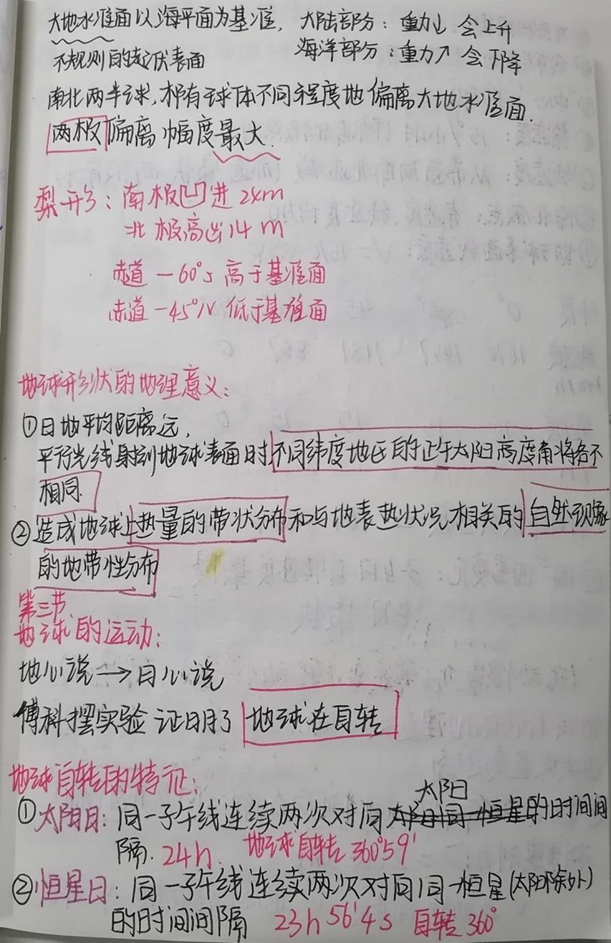 大地水准面以海平面为基准, 大陆部分: 重力↓ 会上升
不规则的起伏表面 海洋部分: 重力↗ 会下降
南北两半球, 都有球体不同程度地偏离大地水准面.
两极偏离幅度最大.
梨形: 南极凹进24m
北极高出14m
赤道—60°s 高于基准面
赤道—45°N 低于基准面
地球形状的地理意义:
①日地平均距离远,
平行光线射到地球表面时不同纬度地区的正午太阳高度角将各不
相同.
②造成地球上热量的带状分布和与地表热状况相关的自然现象
的地带性分布
第三节
地球的运动:
地心说→日心说
傅科摆实验 证明了 地球在自转
地球自转的特征:
太阳
①太阳日: 同一子午线连续两次对向太阳同一恒星的时间间
隔. 24h. 地球自转 360°59'
②恒星日: 同一子午线连续两次对向同一恒星(太阳除外)
的时间间隔 23h 56'4s 自转 360°